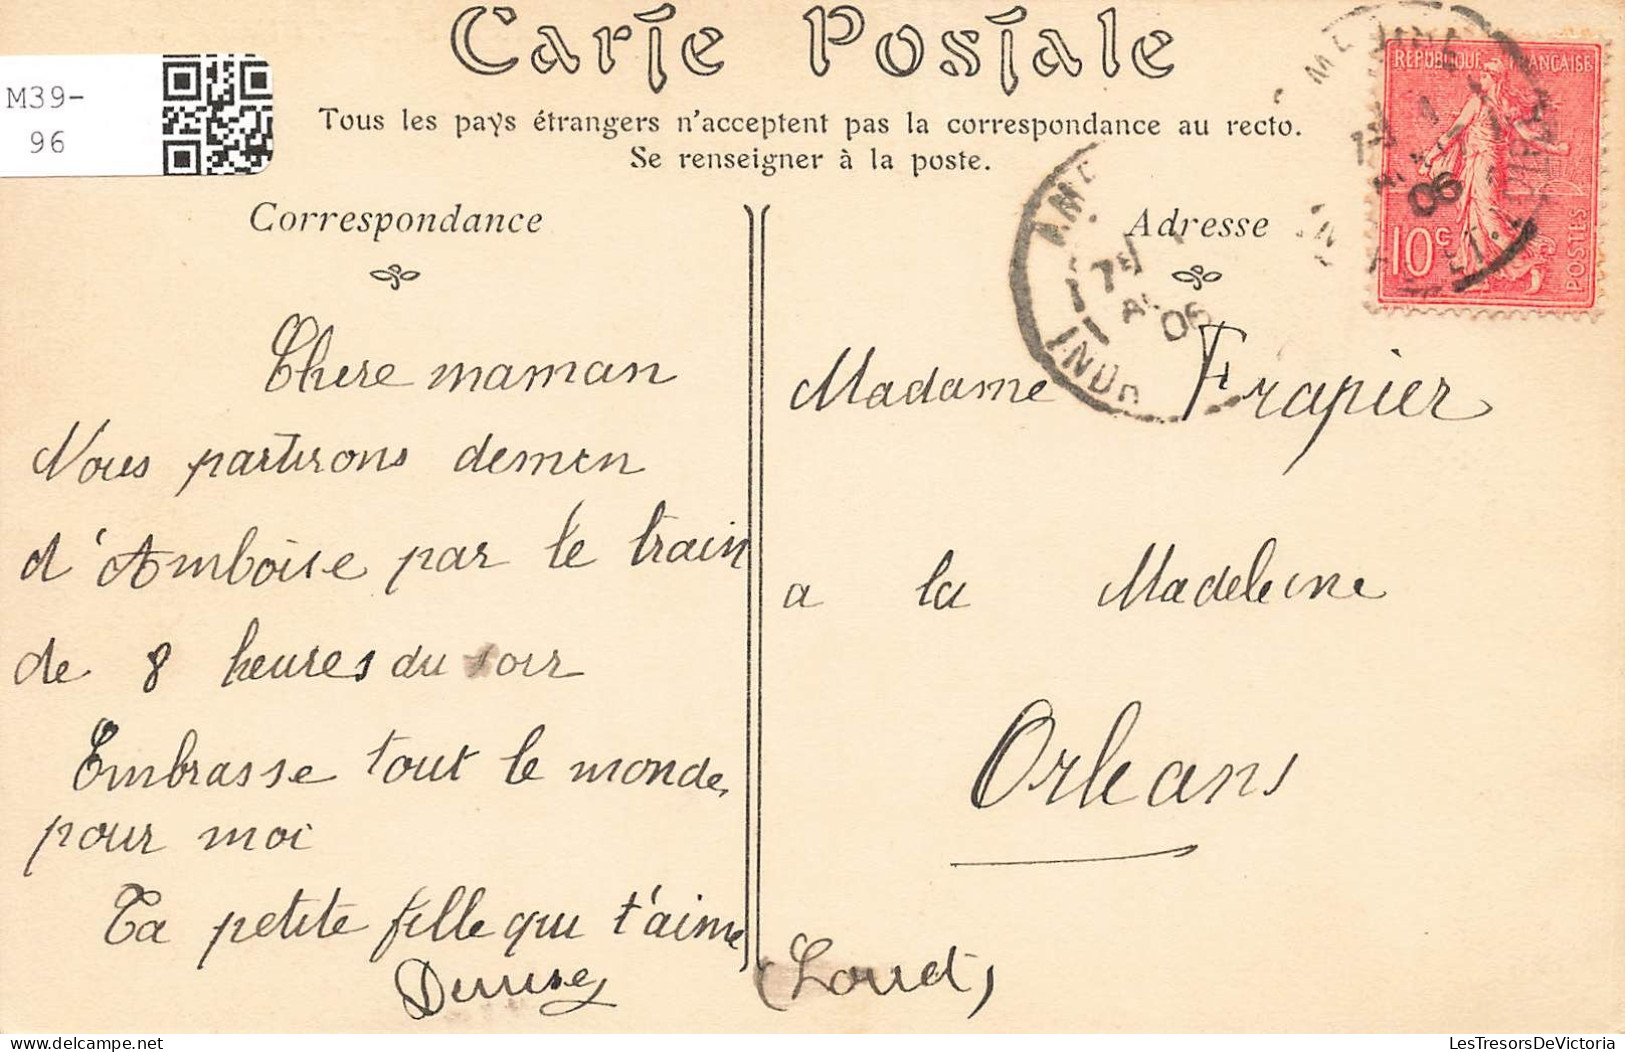 Carte Postale
M39-
96
Tous les pays étrangers n'acceptent pas la correspondance au recto.
Se renseigner à la poste.
Correspondance
Chere maman
Nous partirons demen
d'Amboise par le train
de 8 heures du soir
Embrasse tout le monde
pour moi
Ta petite fille qui t'aime
Denise
Adresse
Madame Frapier
a la Madeleine
Orleans
(Loiret)
REPUBLIQUE FRANÇAISE
10c
POSTES
06
AMB
06
INDR
www.LesTresorsDeVictoria.com